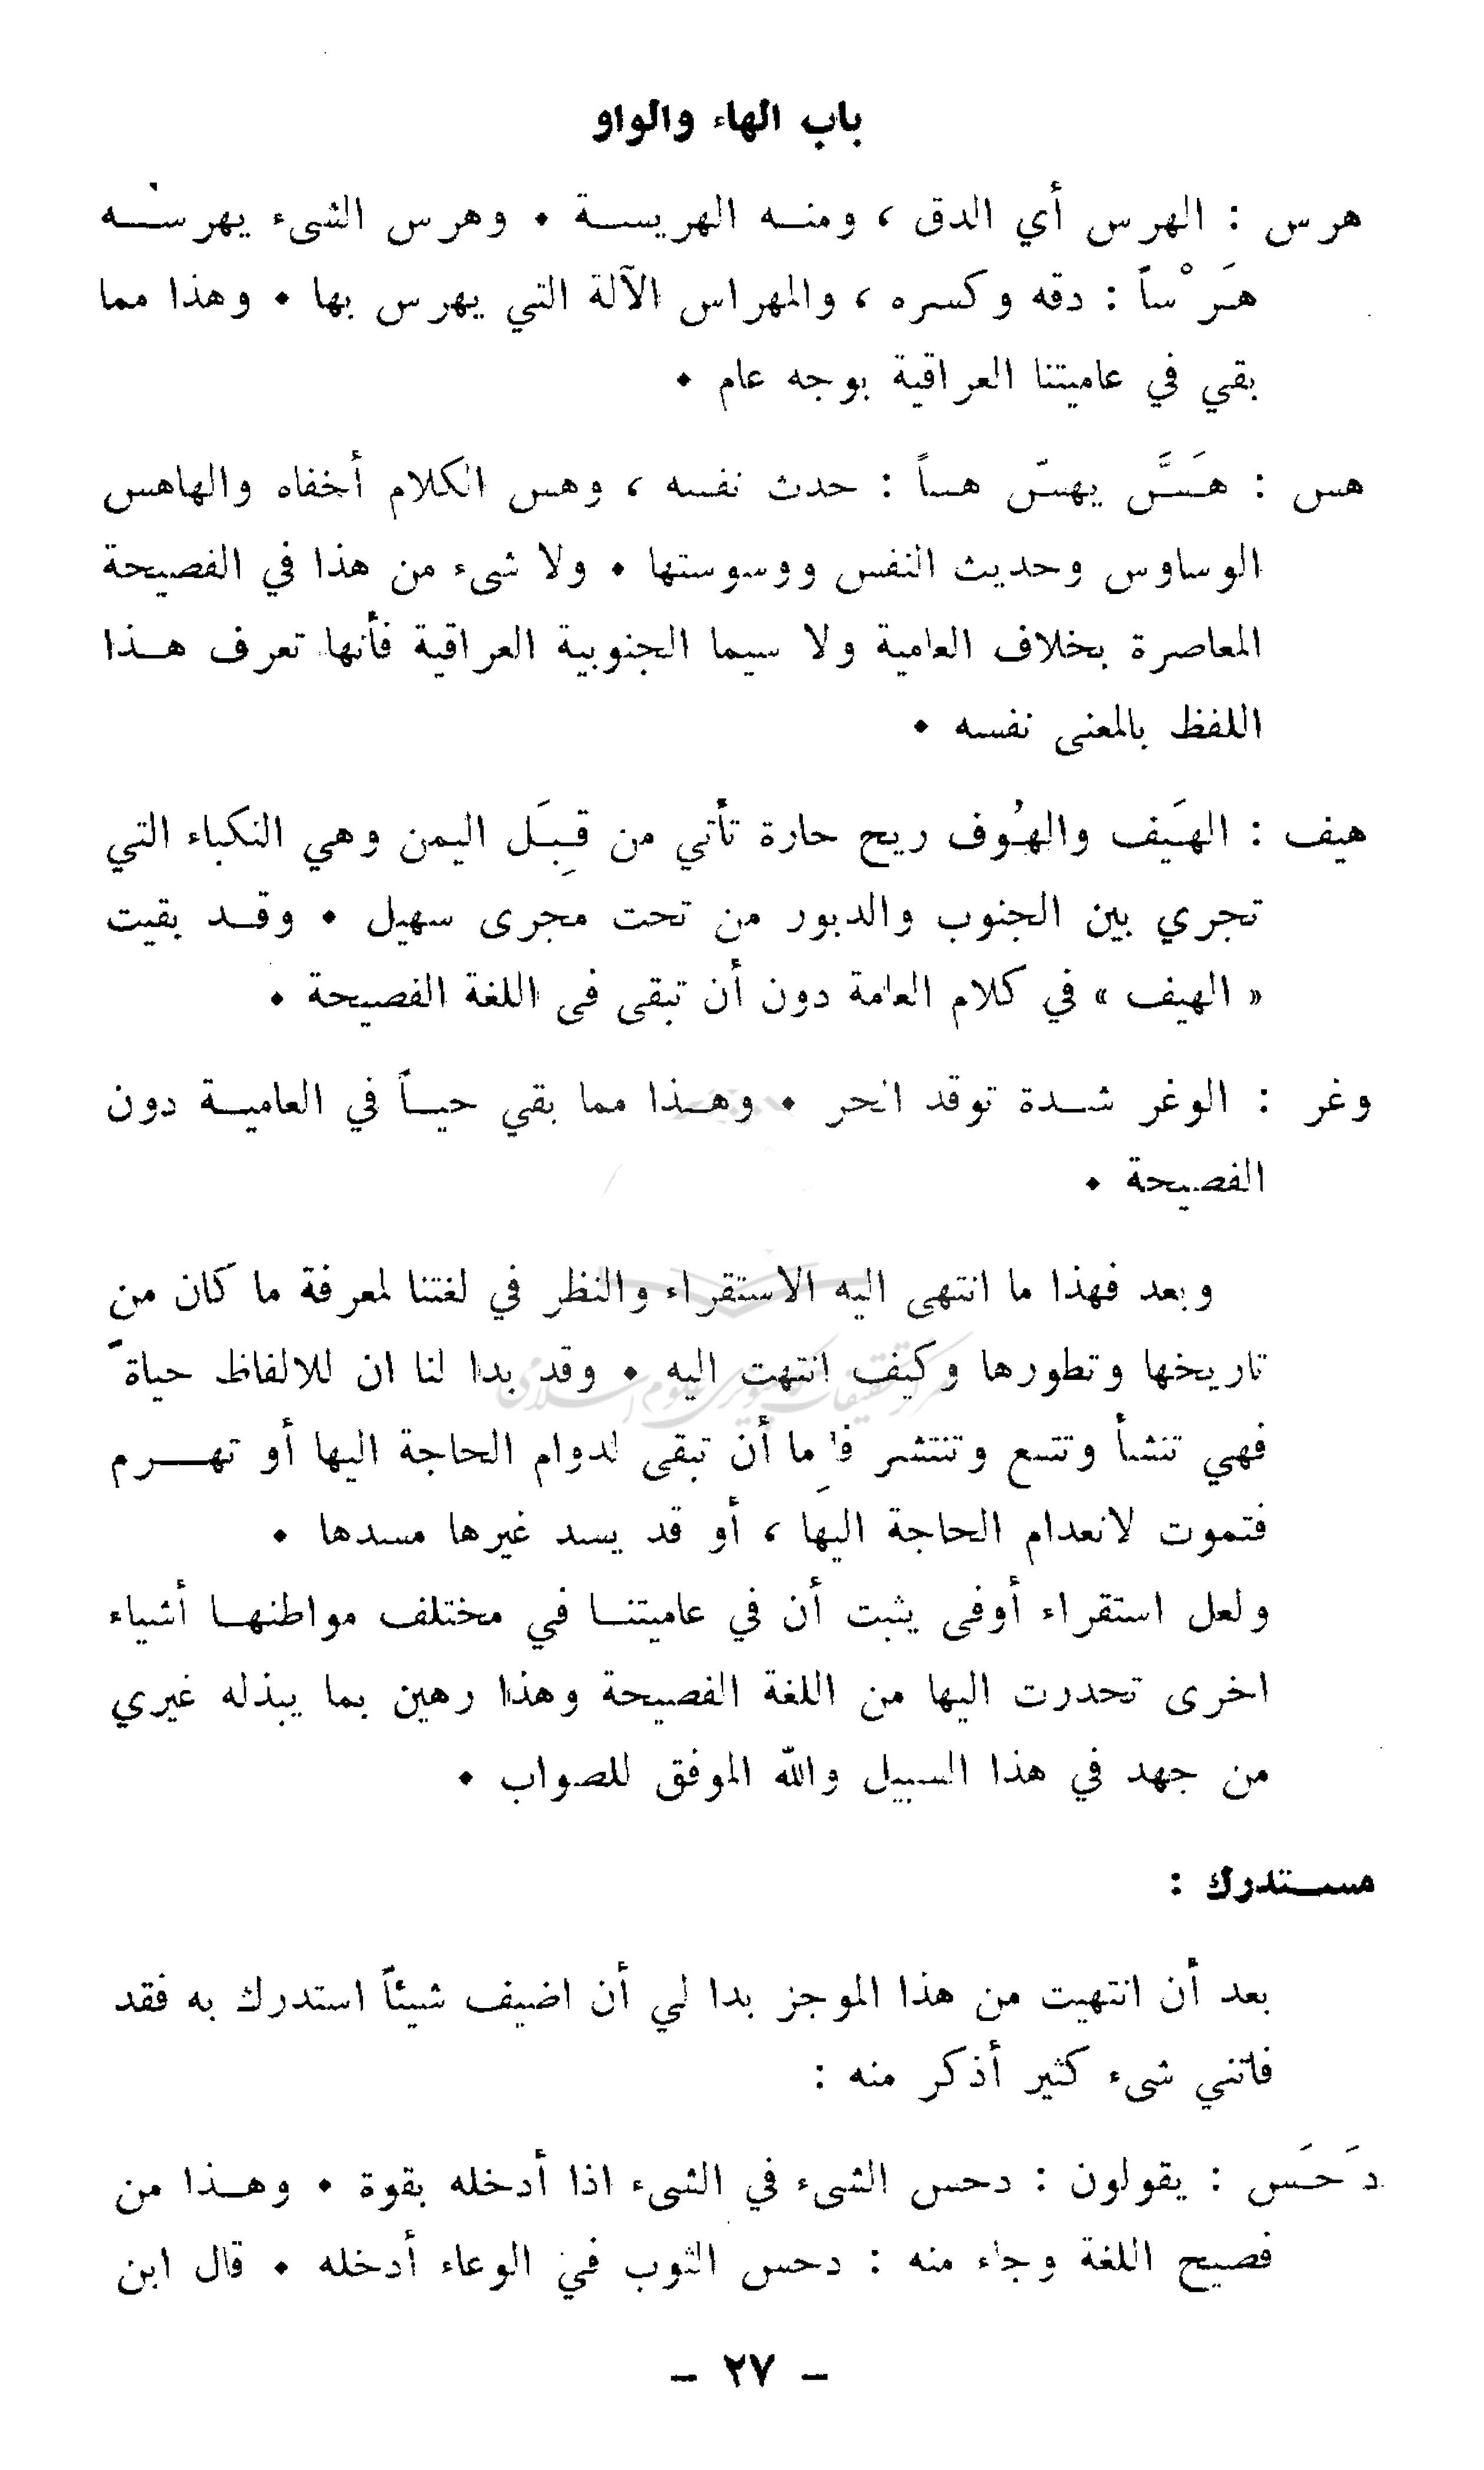 باب الهاء والواو
هرس : الهرس أي الدق ، ومنـه الهريسـة ٠ وهرس الشىء يهرسـُه
هَرْساً : دقه وكسره ، والمهراس الآلة التي يهرس بها ٠ وهذا مما
بقي في عاميتنا العراقية بوجه عام ٠
هس : هَسَّ يهسّ هساً : حدث نفسه ، وهس الكلام أخفاه والهاهس
الوساوس وحديث النفس ووسوستها ٠ ولا شىء من هذا في الفصيحة
المعاصرة بخلاف العامية ولا سيما الجنوبية العراقية فأنها تعرف هـذا
اللفظ بالمعنى نفسه ٠
هيف : الهَيف والهُوف ريح حارة تأتي من قِبَل اليمن وهي النكباء التي
تجري بين الجنوب والدبور من تحت مجرى سهيل ٠ وقـد بقيت
« الهيف » في كلام العامة دون أن تبقى فى اللغة الفصيحة ٠
وغر : الوغر شـدة توقد الحر ٠ وهـذا مما بقي حيـاً في العاميـة دون
الفصيحة ٠
وبعد فهذا ما انتهى اليه الاستقراء والنظر في لغتنا لمعرفة ما كان من
تاريخها وتطورها وكيف انتهت اليه ٠ وقد بدا لنا ان للالفاظ حياةً
فهي تنشأ وتتسع وتنتشر فاِما أن تبقى لدوام الحاجة اليها أو تهـــرم
فتموت لانعدام الحاجة اليها ، أو قد يسد غيرها مسدها ٠
ولعل استقراء أوفى يثبت أن في عاميتنـا في مختلف مواطنهـا أشياء
اخرى تحدرت اليها من اللغة الفصيحة وهذا رهين بما يبذله غيري
من جهد في هذا السبيل والله الموفق للصواب ٠
مسـتدرك :
بعد أن انتهيت من هذا الموجز بدا لي أن اضيف شيئاً استدرك به فقد
فاتني شىء كثير أذكر منه :
دَحَس : يقولون : دحس الشىء في الشىء اذا أدخله بقوة ٠ وهـذا من
فصيح اللغة وجاء منه : دحس الثوب في الوعاء أدخله ٠ قال ابن
– ٢٧ –